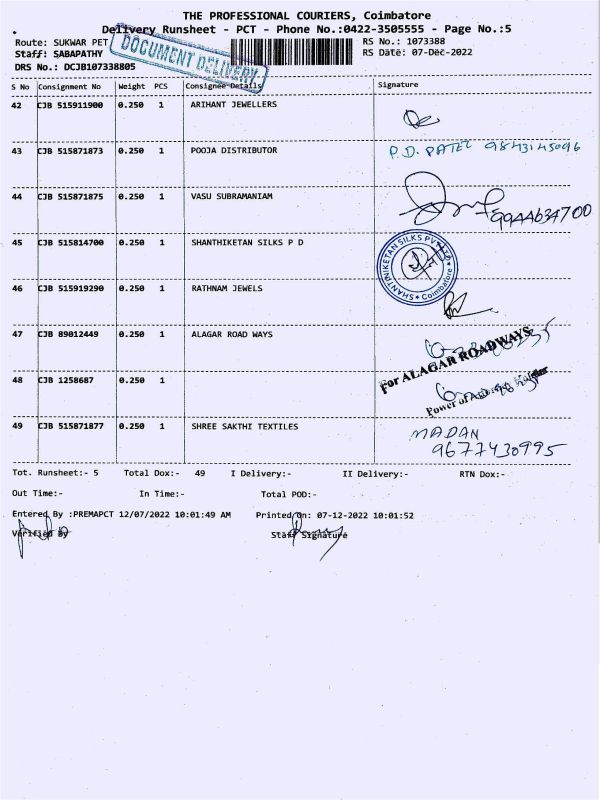 THE PROFESSIONAL COURIERS, Coimbatore
Delivery Runsheet - PCT - Phone No.:0422-3505555 - Page No.:5
Route: SUKWAR PET
RS No.: 1073388
Staff: SABAPATHY
RS Date: 07-Dec-2022
DOCUMENT DELIVERY
DRS No.: DCJB107338805
S No Consignment No Weight PCS Consignee Details Signature
42 CJB 515911900 0.250 1 ARIHANT JEWELLERS
43 CJB 515871873 0.250 1 POOJA DISTRIBUTOR P.D. PATEL 9843145096
44 CJB 515871875 0.250 1 VASU SUBRAMANIAM
9944634700
45 CJB 515814700 0.250 1 SHANTHIKETAN SILKS P D
SHANTHNIKETAN SILKS PVT LTD * Coimbatore *
46 CJB 515919290 0.250 1 RATHNAM JEWELS
47 CJB 89012449 0.250 1 ALAGAR ROAD WAYS
For ALAGAR ROADWAYS
48 CJB 1258687 0.250 1
Power of
49 CJB 515871877 0.250 1 SHREE SAKTHI TEXTILES MADAN
9677430995
Tot. Runsheet:- 5 Total Dox:- 49 I Delivery:- II Delivery:- RTN Dox:-
Out Time:- In Time:- Total POD:-
Entered By :PREMAPCT 12/07/2022 10:01:49 AM Printed On: 07-12-2022 10:01:52
Verified By Staff Signature